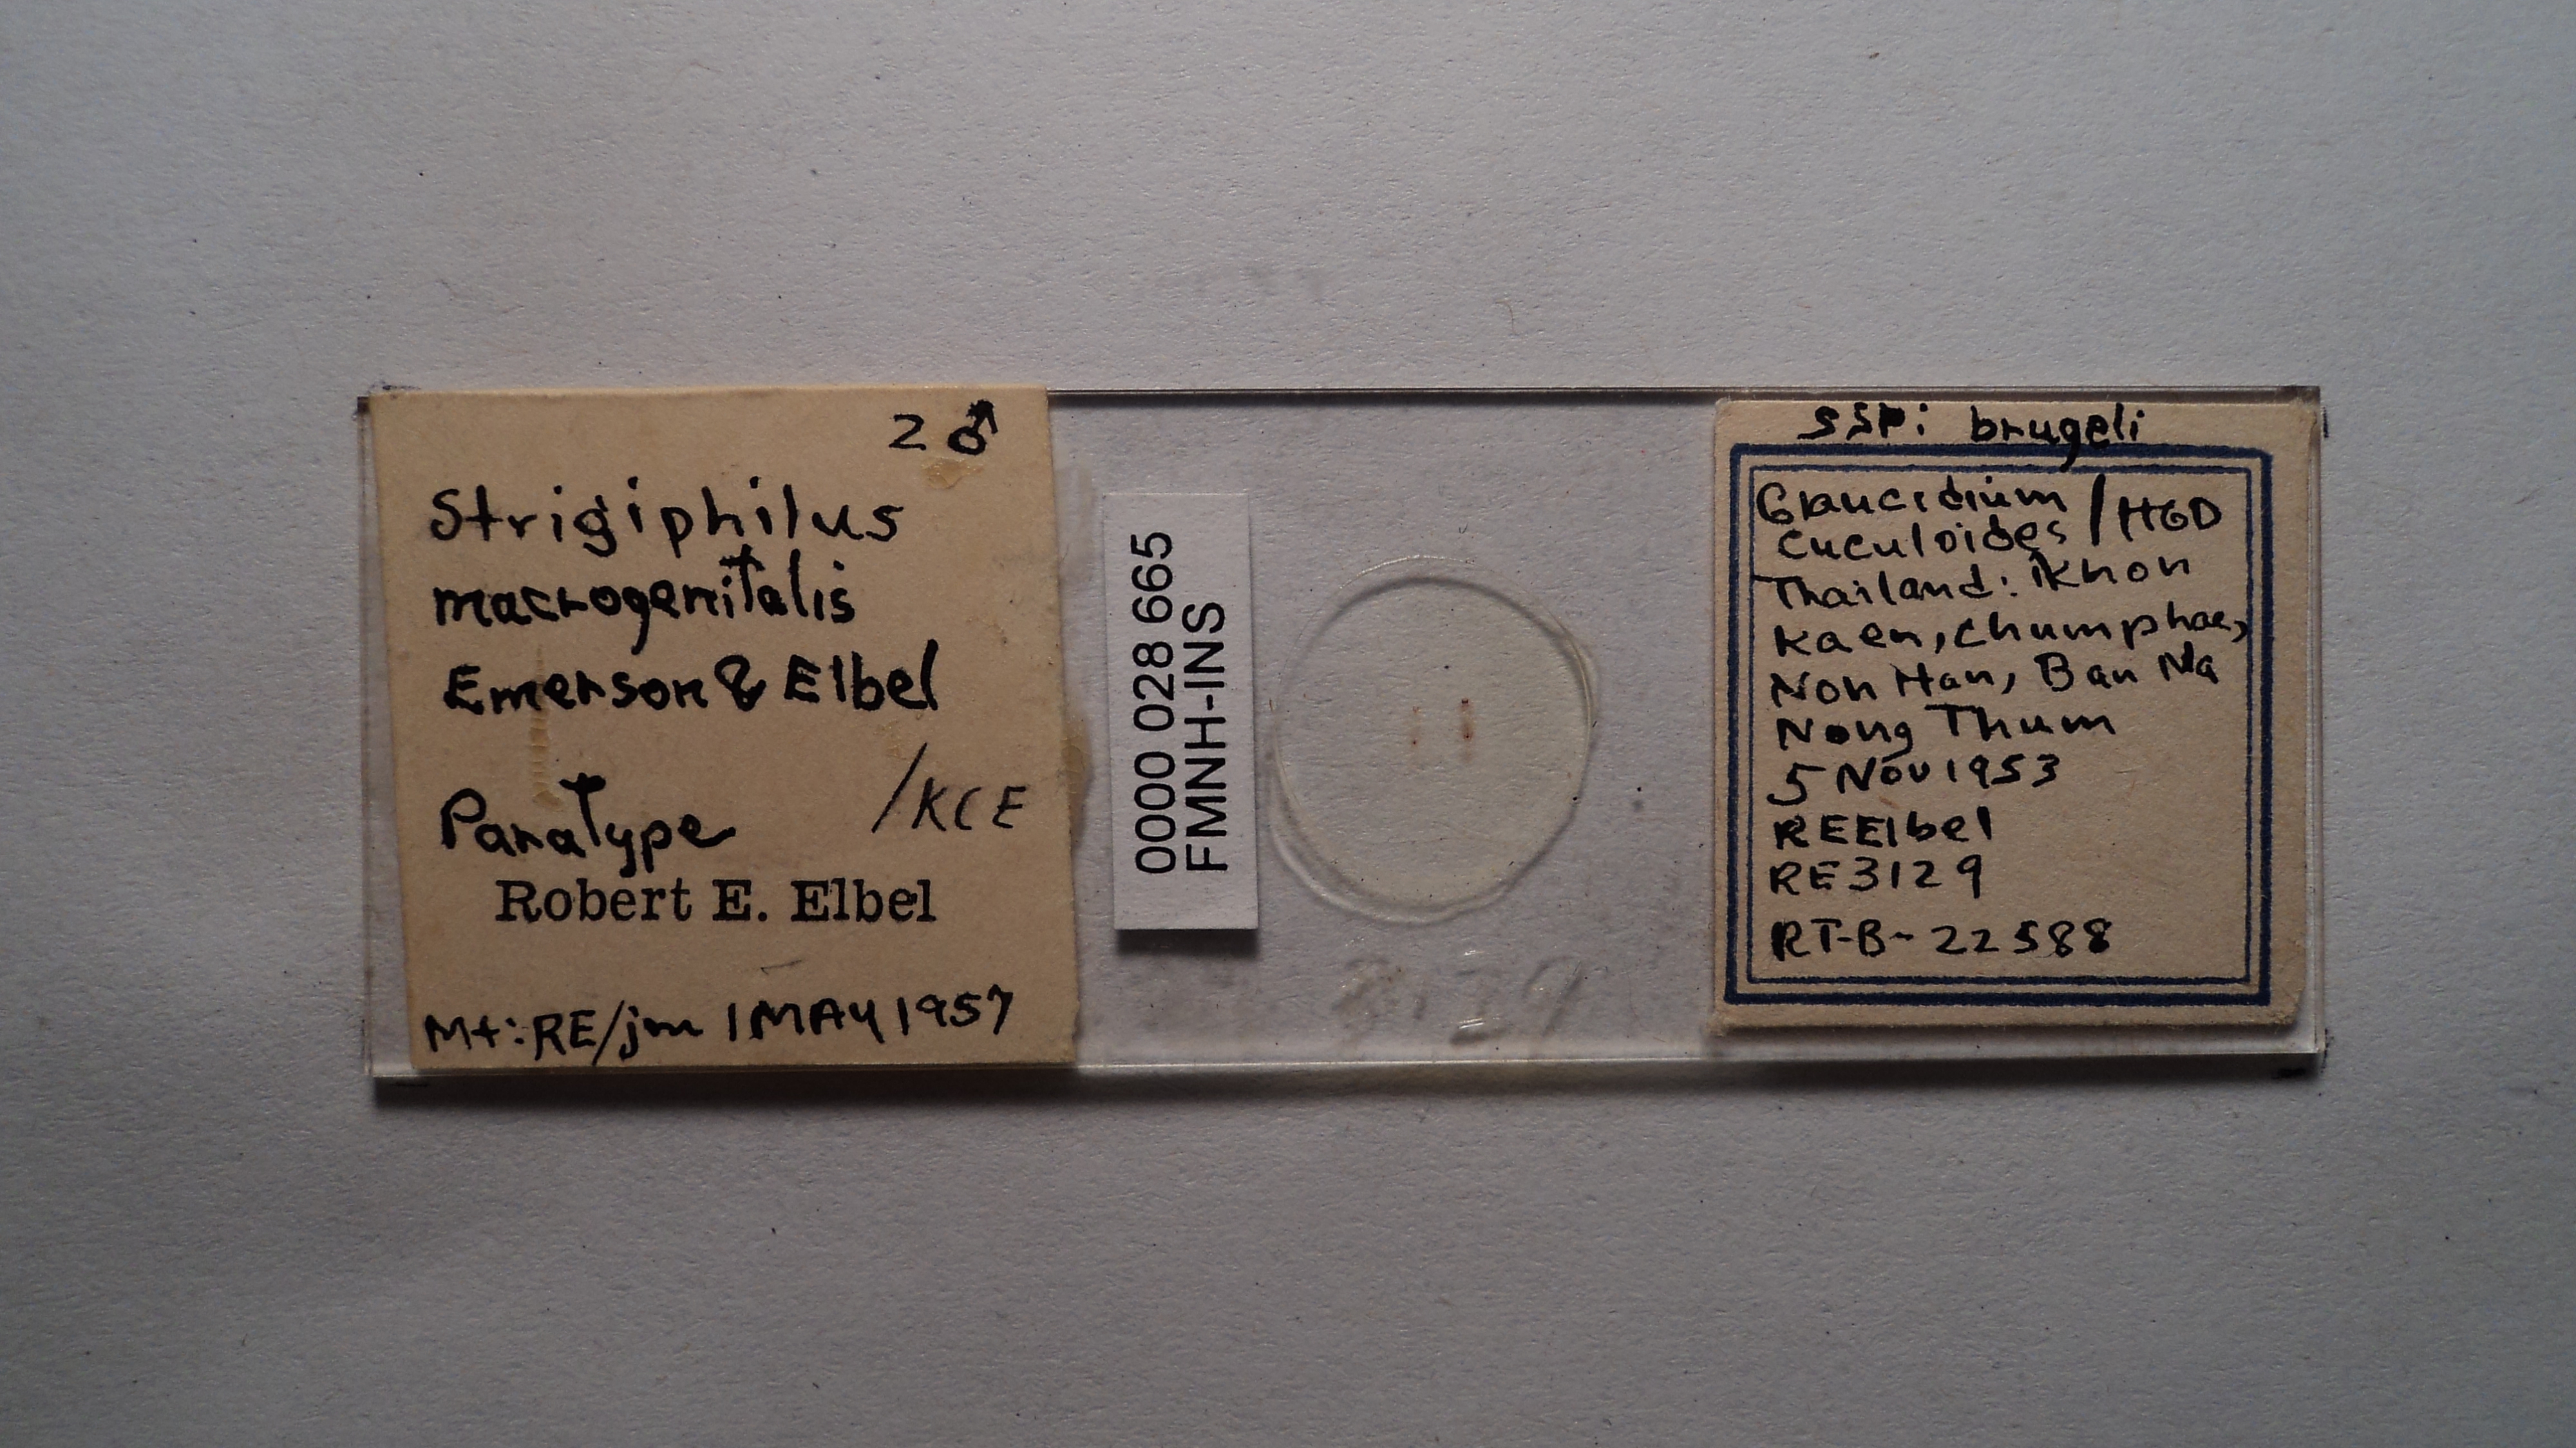 2 ♂
Strigiphilus
macrogenitalis
Emerson & Elbel
Paratype /KCE
Robert E. Elbel
Mt: RE/jm 1 MAY 1957
0000 028 665
FMNH-INS
3129
SSP: brugeli
Glaucidium /HGD
cuculoides
Thailand: Khon
Kaen, Chumphae,
Non Han, Ban Na
Nong Thum
5 Nov 1953
REElbel
RE3129
RT-B-22588